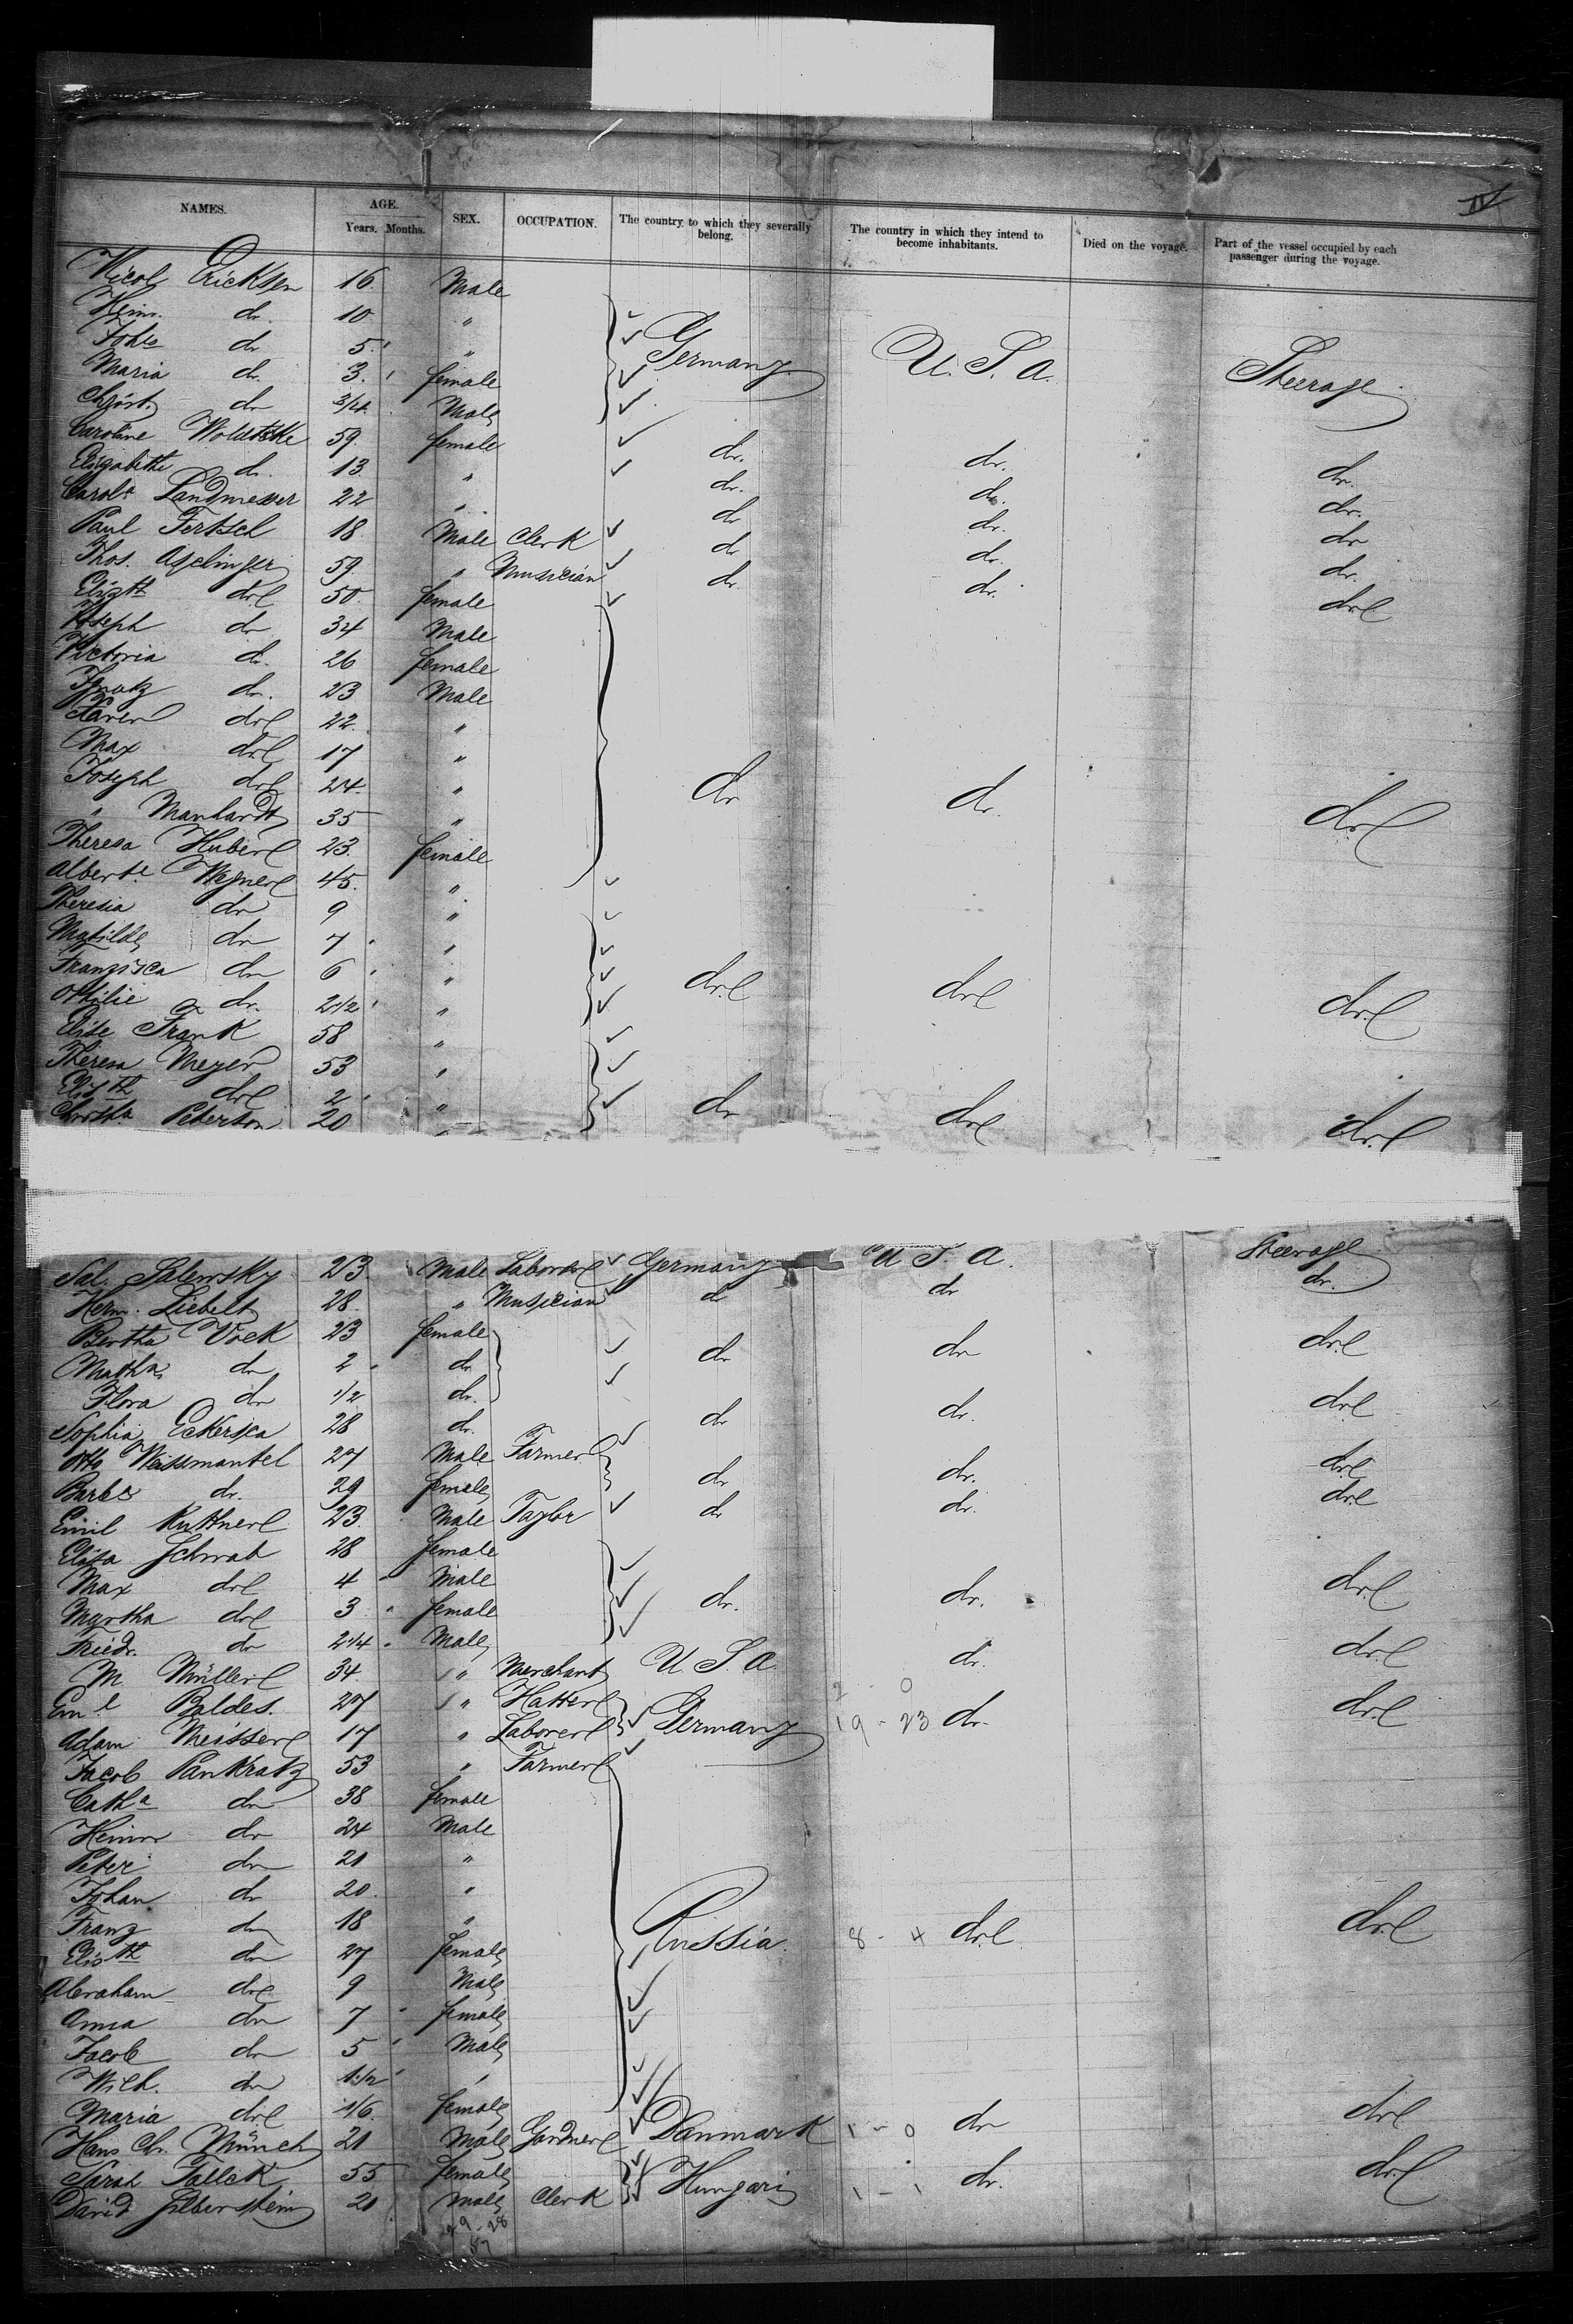 IV
NAMES. AGE. SEX. OCCUPATION. The country to which they severally belong. The country in which they intend to become inhabitants. Died on the voyage. Part of the vessel occupied by each passenger during the voyage.
Years. Months.
Nicol Ericksen 16 Male
Heinr. do 10 "
Johs do 5 "
Maria do 3 female Germany U. S. A. Steerage
Christ. do 3/4 Male
Caroline 59 female do. do. do.
Elisabeth do. 13 " do. do. do.
Carola Landmesser 22 " do do. do
Paul Fertsch 18 Male Clerk do do. do.
Thos. Asclinger 59 " Musician do. do. do
Elisth do 50 female
Joseph do 34 Male
Victoria do. 26 female
Ignatz do. 23 Male
Xaver do 22 "
Max do 17 "
Joseph do 24 " do do. do
" Manhardt 35 "
Theresa Huber 23 female
Alberte Wegner 45 "
Theresia do 9 "
Matilde do 7 "
Franzisca do 6 " do do do
Othilie do. 2 1/2 "
Elise Frank 58 "
Theresa Meyer 53 "
Elisth do 2 " do do do
Christa. Peterson 20
Sal. Salewsky 23 Male Laborer Germany U S. A. Steerage
Herm. Liebelt 28 " Musician do do do.
Bertha Vock 23 female
Martha do 2 do do do do
Flora do 1/2 do.
Sophia Eckersca 28 do. do do. do
Otto Weissmantel 27 Male Farmer do do. do
Barba do. 29 female
Emil Kuttner 23 Male Taylor do do. do
Elisa Schwab 28 female
Max do 4 Male
Myrtha do 3 female do. do. do
Friedr. do 2 1/4 Male
M. Müller 34 " Merchant U. S. A do. do
Eml Baldes. 27 " Hatter Germany 19 - 23 do. do
Adam Meisser 17 " Laborer
Jacob Pankratz 53 " Farmer
Catha do 38 female
Heinr do 24 Male
Peter do 21 "
Johan do 20 "
Franz do 18 " Russia. 8 - 4 do do
Elisth do 27 female
Abraham do 9 Male
Anna do 7 female
Jacob do 5 Male
Wilh. do 1 1/2 "
Maria do 1/6 female
Hans Chr. Münch 21 Male Gardner Danmark 1 - 0 do do
Sarah Falleck 55 female Hungari 1 - 1 do. do
David Silberstein 21 Male Clerk
29 - 28
57